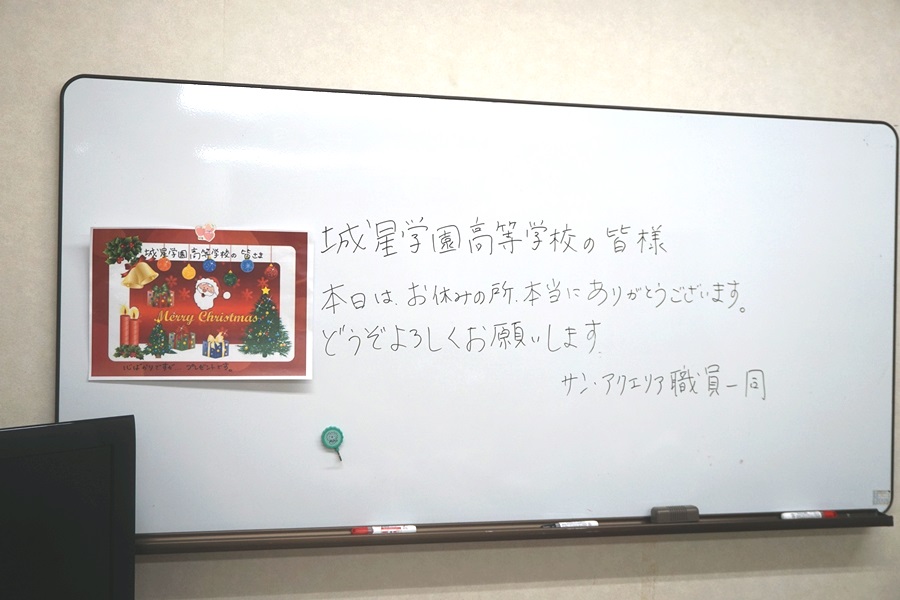 城星学園高等学校の皆様
本日は、お休みの所、本当にありがとうございます。
どうぞよろしくお願いします。
サン・アクエリア職員一同
城星学園高等学校の皆さま
Merry Christmas
心ばかりですが… プレゼントです。